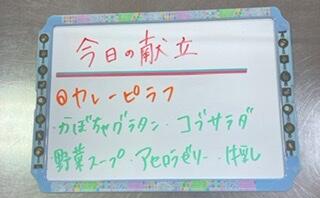 今日の献立
◎カレーピラフ
・かぼちゃグラタン・コブサラダ
野菜スープ・アセロラゼリー・牛乳